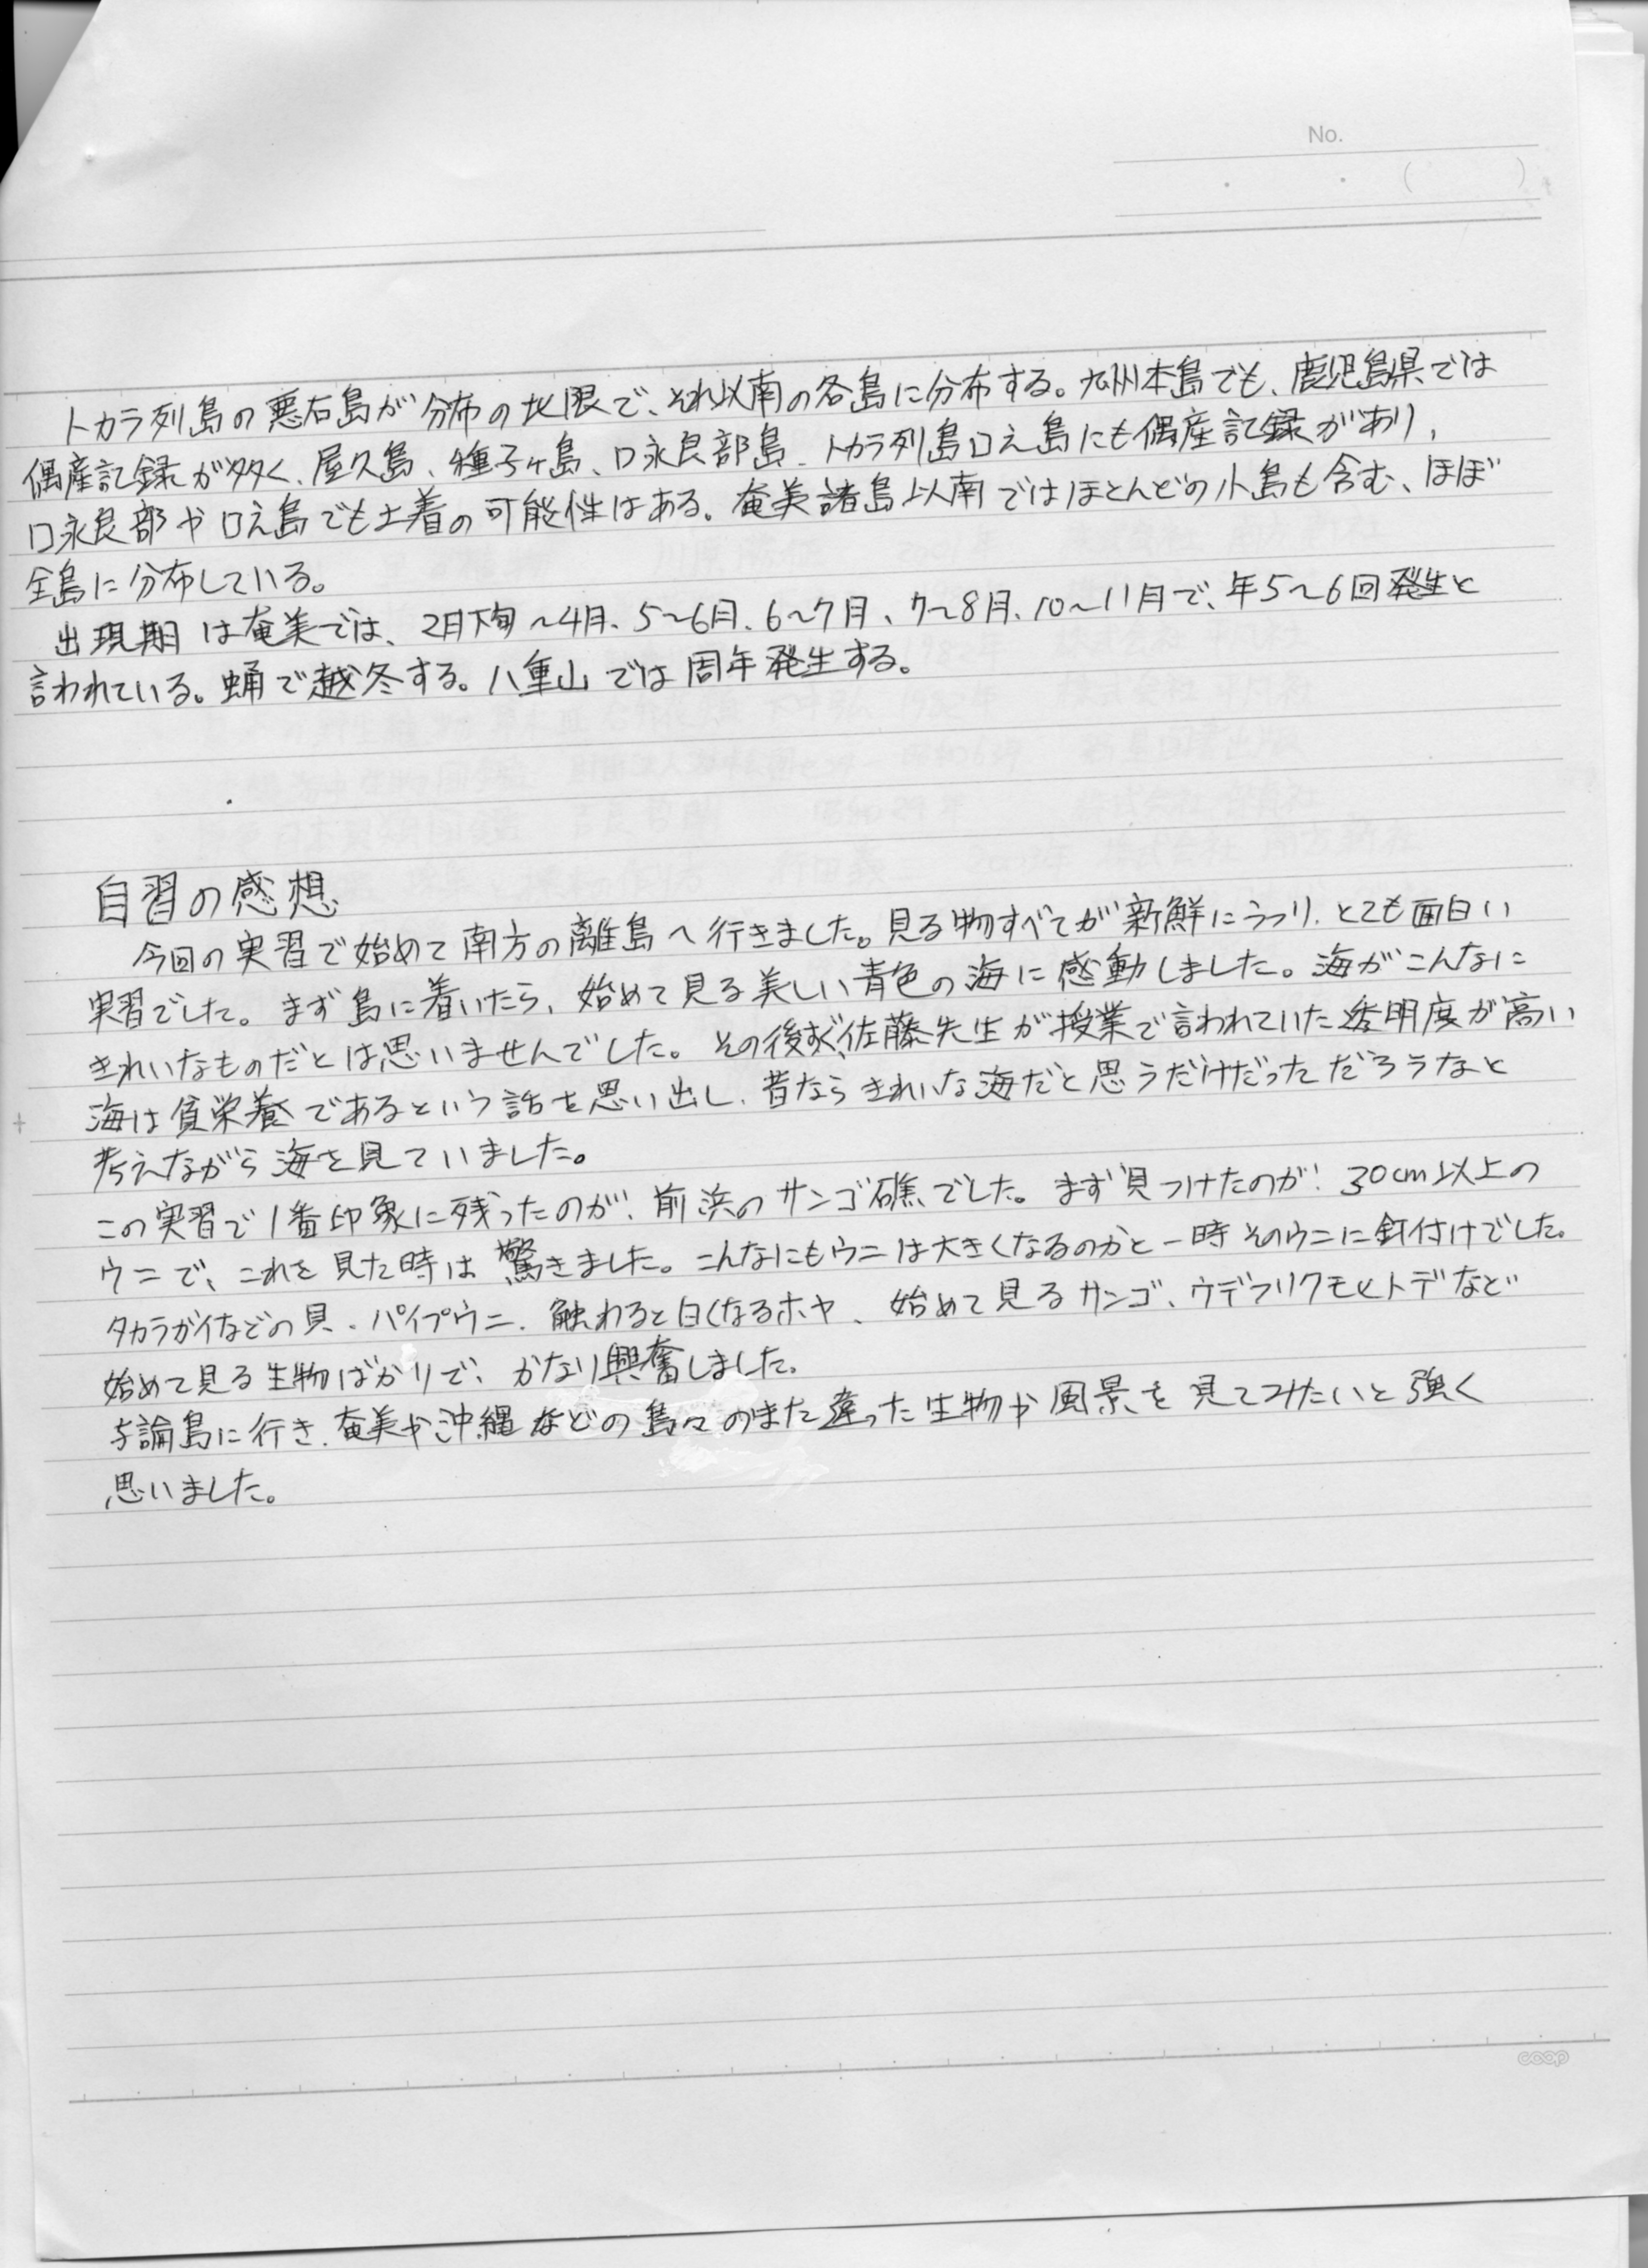 No.
トカラ列島の悪石島が分布の北限で、それ以南の各島に分布する。九州本島でも、鹿児島県では
偶産記録が多く、屋久島、種子ヶ島、口永良部島、トカラ列島口え島にも偶産記録があり、
口永良部や口え島でも土着の可能性はある。奄美諸島以南ではほとんどの小島も含む、ほぼ
全島に分布している。
出現期は奄美では、2月下旬〜4月、5〜6月、6〜7月、7〜8月、10〜11月で、年5〜6回発生と
言われている。蛹で越冬する。八重山では周年発生する。
自習の感想
今回の実習で始めて南方の離島へ行きました。見る物すべてが新鮮にうつり、とても面白い
実習でした。まず島に着いたら、始めて見る美しい青色の海に感動しました。海がこんなに
きれいなものだとは思いませんでした。その後すぐ、佐藤先生が授業で言われていた透明度が高い
海は貧栄養であるという話を思い出し、昔ならきれいな海だと思うだけだっただろうなと
考えながら海を見ていました。
この実習で1番印象に残ったのが、前浜のサンゴ礁でした。まず見つけたのが、30cm以上の
ウニで、これを見た時は驚きました。こんなにもウニは大きくなるのかと一時そのウニに釘付けでした。
タカラガイなどの貝、パイプウニ、触わると白くなるホヤ、始めて見るサンゴ、ウデフリクモヒトデなど
始めて見る生物ばかりで、かなり興奮しました。
与論島に行き、奄美や沖縄などの島々のまた違った生物や風景を見てみたいと強く
思いました。
coop